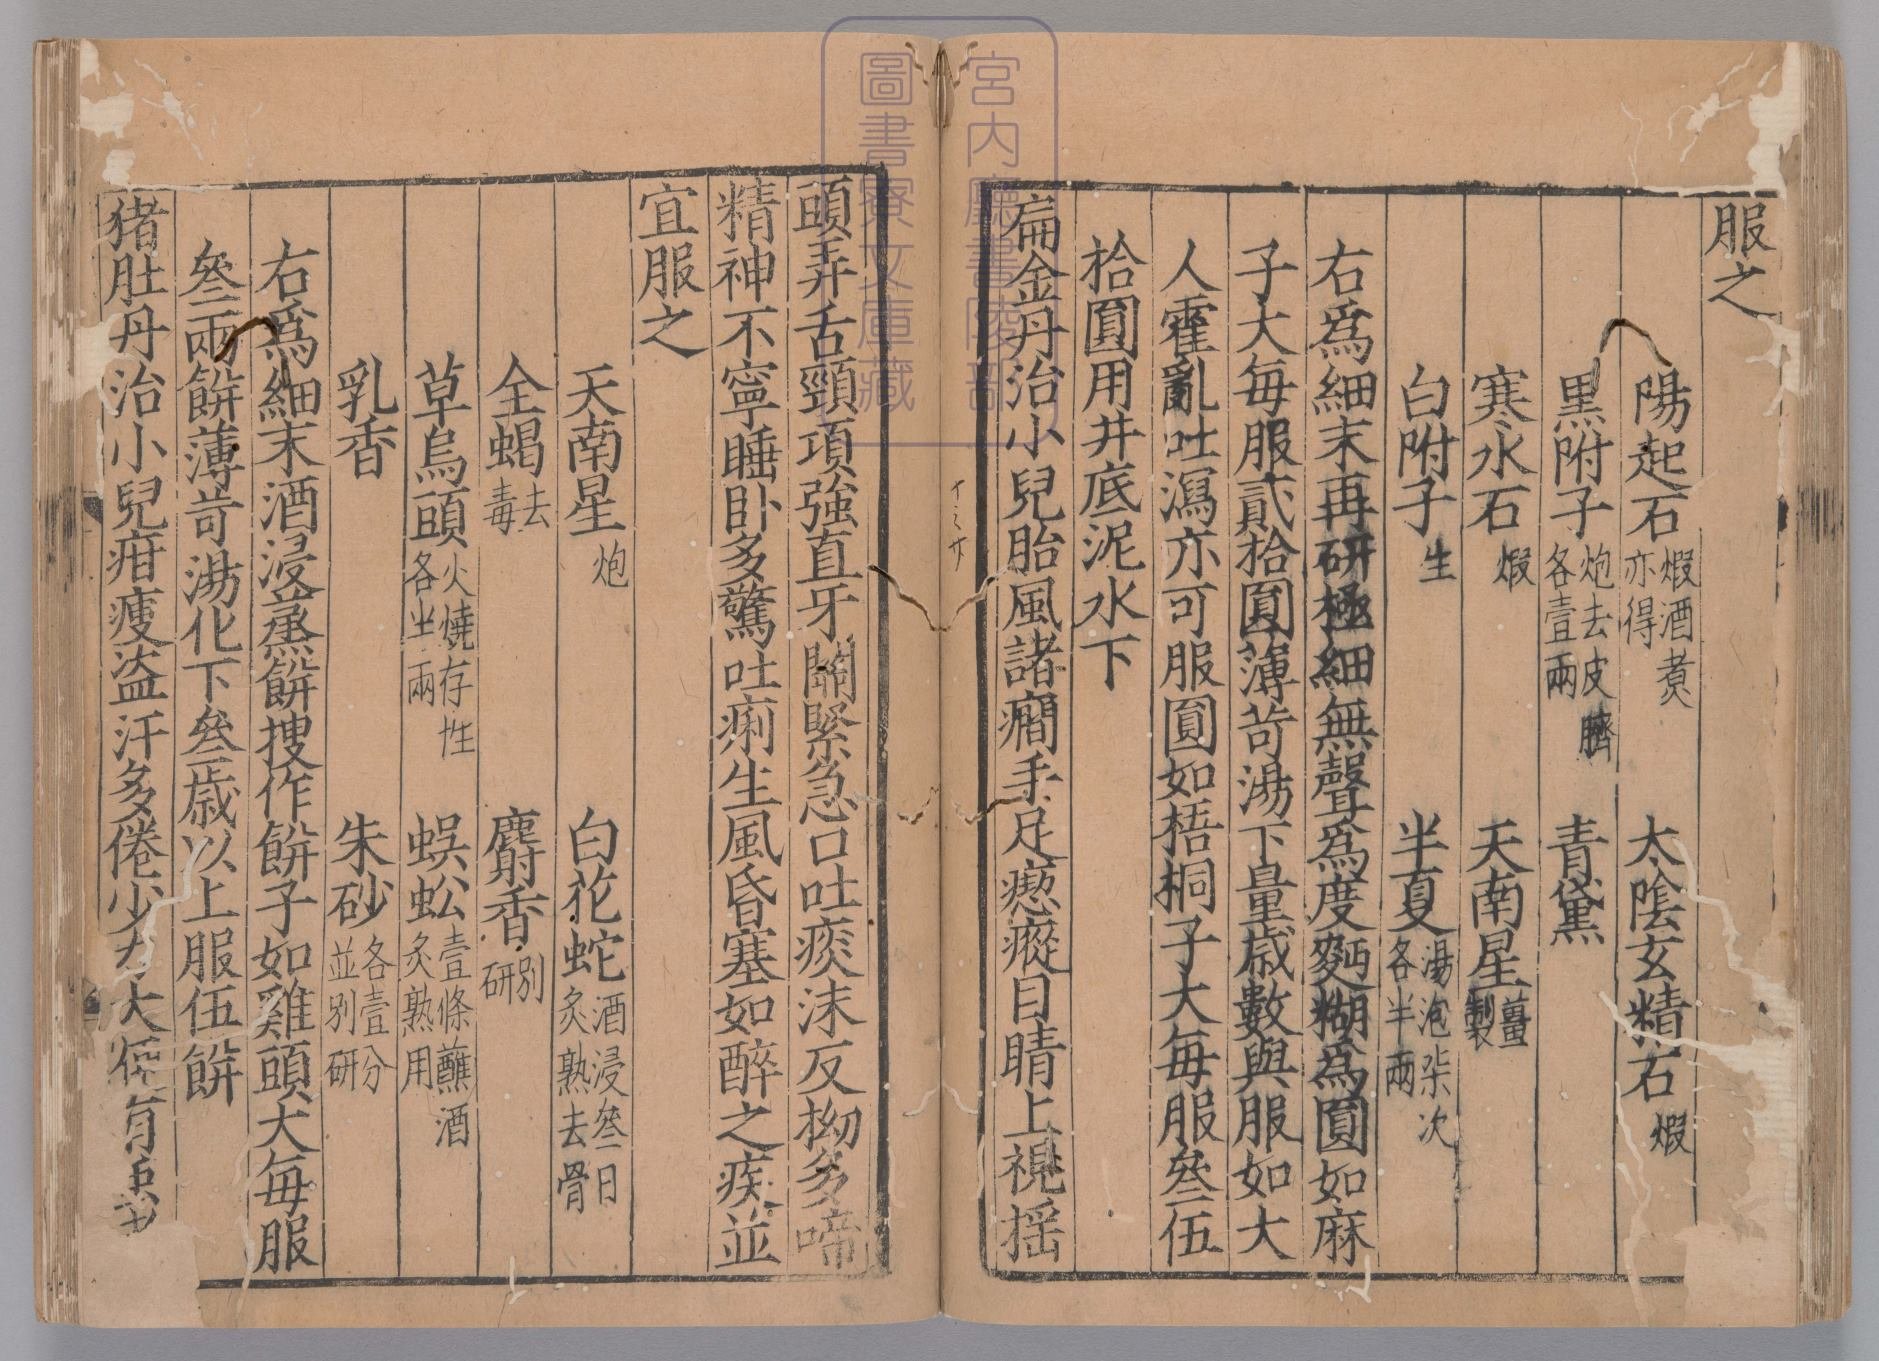 服之
陽起石煆酒煮亦得 太陰玄精石煆
黑附子炮去皮臍各壹兩 青黛
寒水石煆 天南星薑製
白附子生 半夏湯泡柒次各半兩
右爲細末再研極細無聲爲度麪糊爲圓如麻
子大每服貳拾圓薄荷湯下量歲數與服如大
人霍亂吐瀉亦可服圓如梧桐子大每服叁伍
拾圓用井底泥水下
扁金丹治小兒胎風諸癇手足瘛瘲目睛上視揺
頭弄舌頸項強直牙關緊急口吐痰沫反拗多啼
精神不寧睡卧多驚吐痢生風昏塞如醉之疾並
宜服之
天南星炮 白花蛇酒浸叁日炙熟去骨
全蝎去毒 麝香別研
草烏頭火燒存性各半兩 蜈蚣壹條蘸酒炙熟用
乳香 朱砂各壹分並別研
右爲細末酒浸蒸餅搜作餅子如雞頭大每服
叁兩餅薄荷湯化下叁歲以上服伍餅
猪肚丹治小兒疳瘦盗汗多倦少力大便有
宮内廳書陵部
圖書寮文庫藏